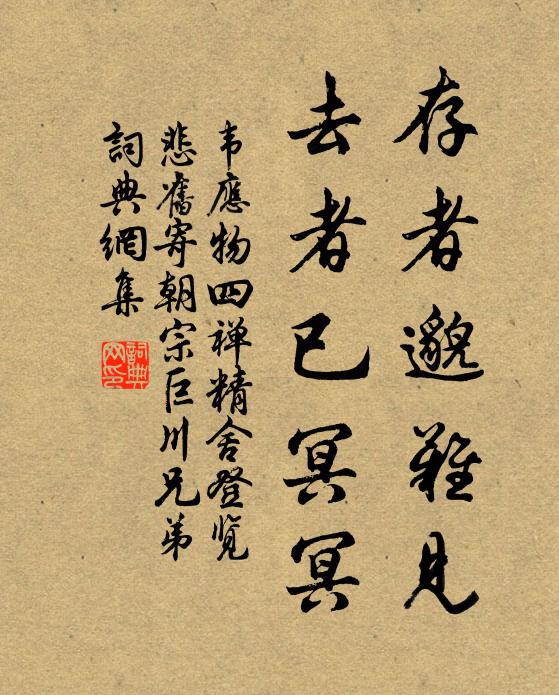 存者邈難見
去者已冥冥
韦應物四禅精舍登览
悲舊寄朝宗巨川兄弟
詞典網集
詞典網印